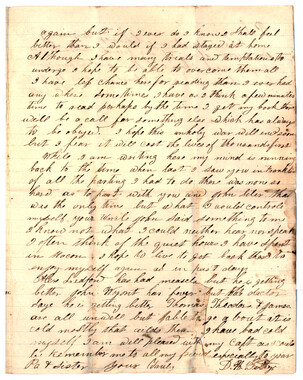 again but if ever do I know I shall feel
better than I would if I had stayed at home
Although I have many treats and temptations to
undergo I hope to be able to overcome them all
I have less chance here for reading than I ever had
any where sometimes I have as I think a few minutes
time to read perhaps by the time I get my book there
will be a call for something else which has always
to be obeyed I hope this unholy war will end soon
but I fear it will cost the lives of thousands first
While I am writing here my mind is running
back to the time when last I saw you
of all the parting I had to do there was none so
hard as to part with you and John Allen that
was the only time but what I could control
myself your Uncle John said something to me
I know not what I could neither hear nor speak
I often think of the quiet hours I have spent
in I hope to live to get back there to
enjoy myself again as in past days
Ledford has had measels but is getting
better John Wyont has fever but the doctor
says he is getting better Thomas Theodore & James
are all unwell but able to go about it is
cold mostly that ails them I have had cold
myself I am well pleased with my Capt as
to Remember me to all my friends especially to your
Pa & sister Your Truly